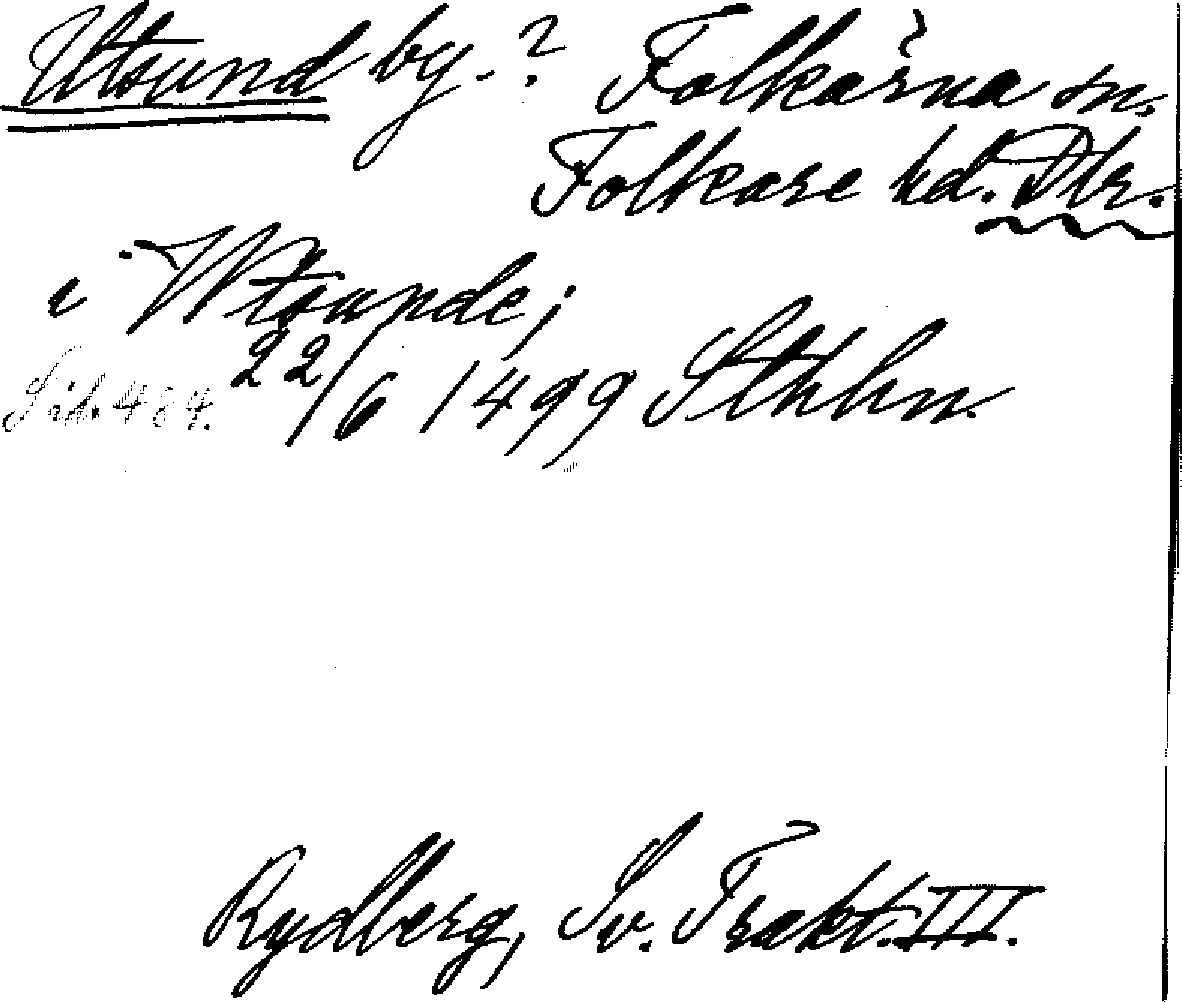 Utsund by. ? Folkärna sn,
Folkare hd. Dlr.
i Wtsunde;
Sid. 484. 22/6 1499 Sthlm.
Rydberg, Sv. Trakt. III.